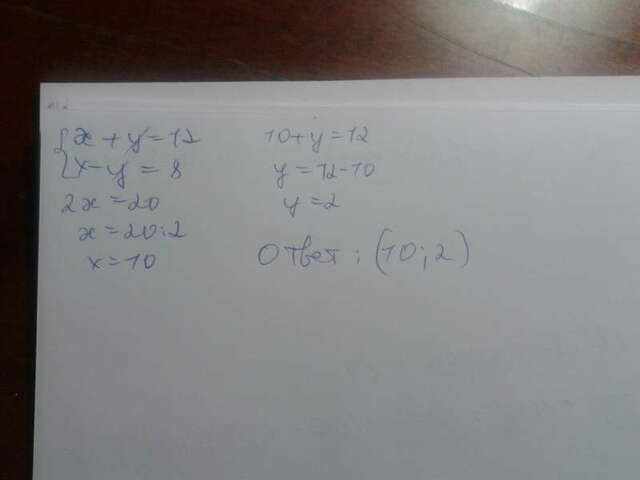 x + y = 12
x - y = 8
2x = 20
x = 20:2
x = 10
10 + y = 12
y = 12 - 10
y = 2
Ответ: (10; 2)